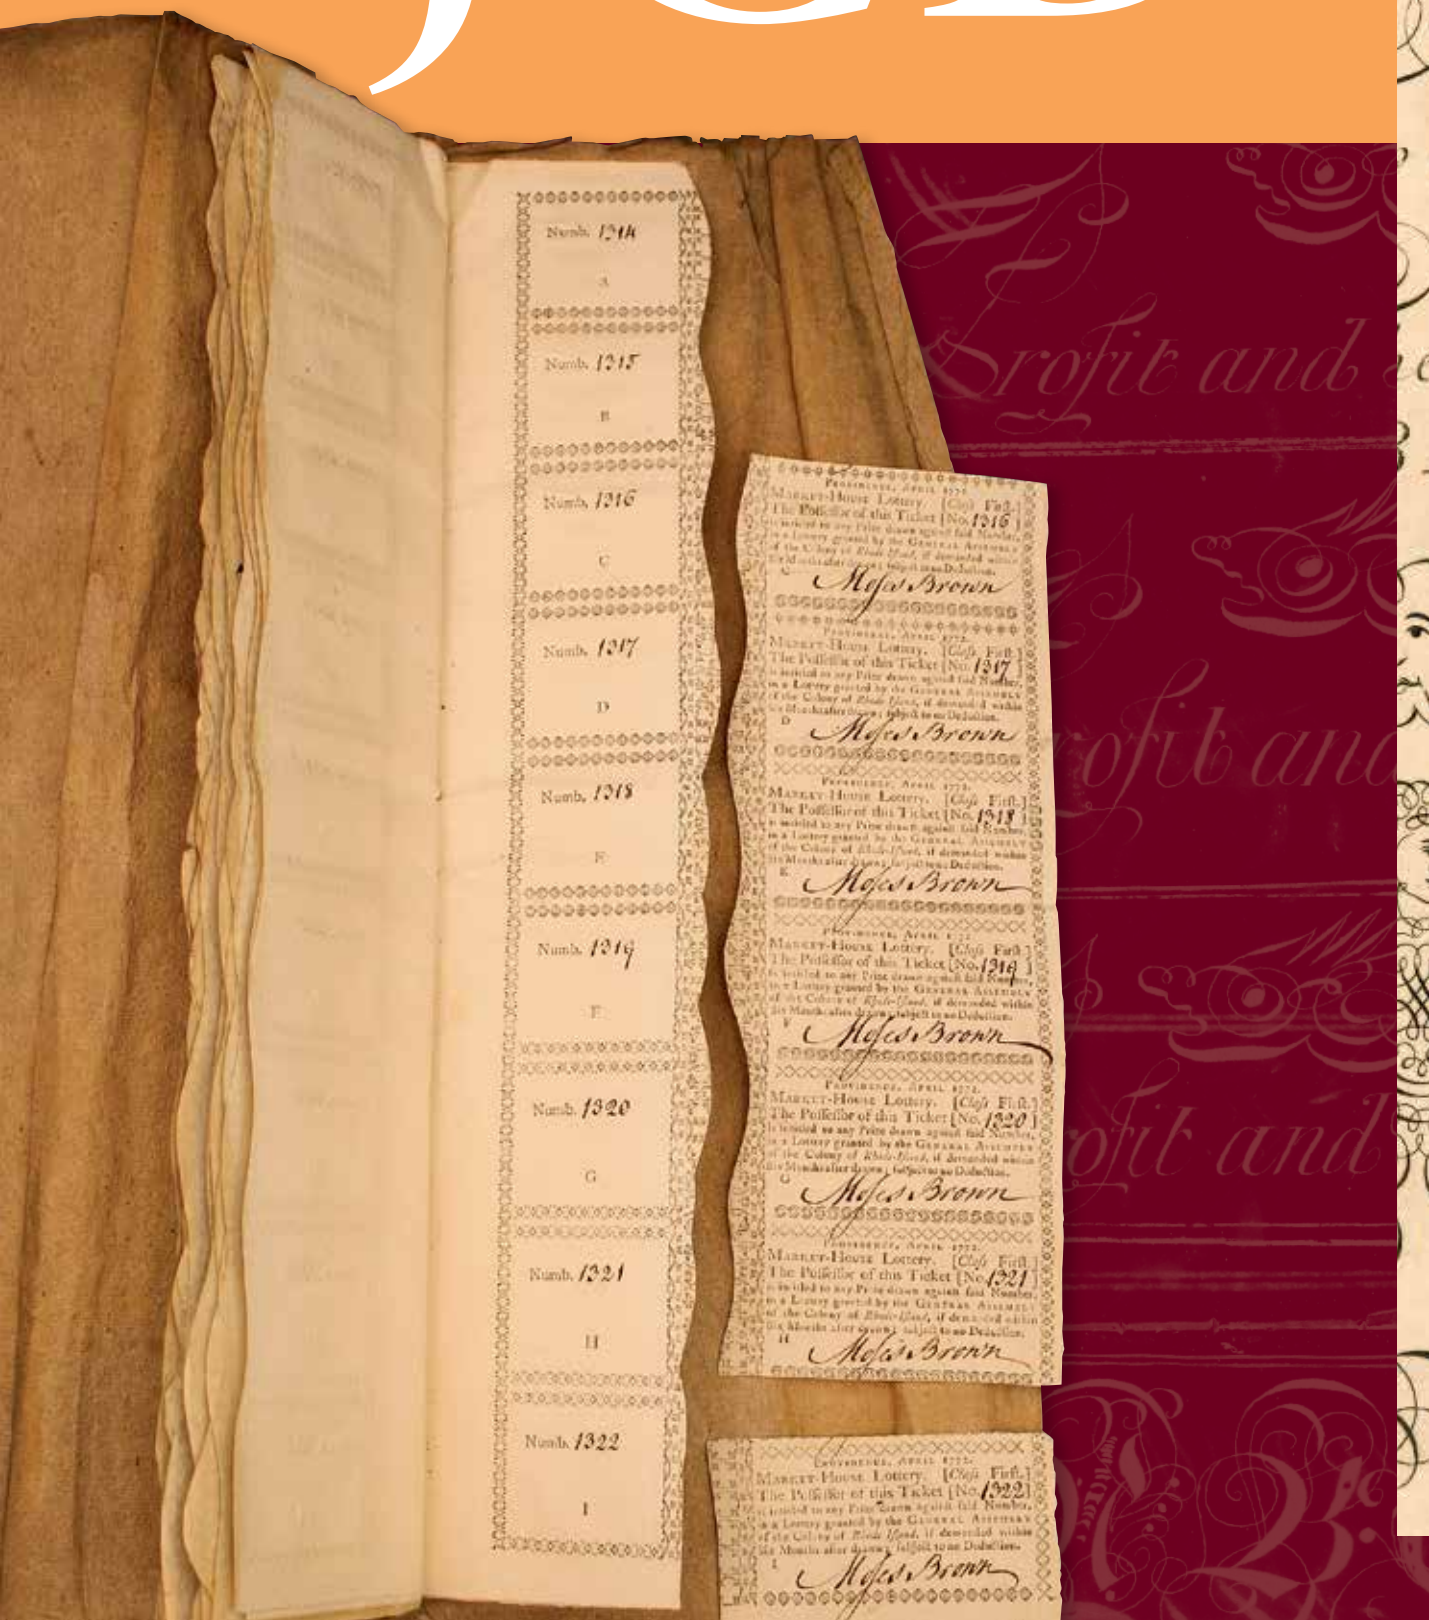 Numb. 1314
A
Numb. 1315
B
Numb. 1316
C
Numb. 1317
D
Numb. 1318
E
Numb. 1319
F
Numb. 1320
G
Numb. 1321
H
Numb. 1322
I
PROVIDENCE, APRIL 1772.
MARKET-HOUSE Lottery. [Claſs Firſt.]
The Poſſeſſor of this Ticket [No. 1316]
is intitled to any Prize drawn againſt ſaid Number,
in a Lottery granted by the GENERAL ASSEMBLY
of the Colony of Rhode-Iſland, if demanded within
ſix Months after drawn; ſubject to no Deduction.
C
Moſes Brown
PROVIDENCE, APRIL 1772.
MARKET-HOUSE Lottery. [Claſs Firſt.]
The Poſſeſſor of this Ticket [No. 1317]
is intitled to any Prize drawn againſt ſaid Number,
in a Lottery granted by the GENERAL ASSEMBLY
of the Colony of Rhode-Iſland, if demanded within
ſix Months after drawn; ſubject to no Deduction.
D
Moſes Brown
PROVIDENCE, APRIL 1772.
MARKET-HOUSE Lottery. [Claſs Firſt.]
The Poſſeſſor of this Ticket [No. 1318]
is intitled to any Prize drawn againſt ſaid Number,
in a Lottery granted by the GENERAL ASSEMBLY
of the Colony of Rhode-Iſland, if demanded within
ſix Months after drawn; ſubject to no Deduction.
E
Moſes Brown
PROVIDENCE, APRIL 1772.
MARKET-HOUSE Lottery. [Claſs Firſt.]
The Poſſeſſor of this Ticket [No. 1319]
is intitled to any Prize drawn againſt ſaid Number,
in a Lottery granted by the GENERAL ASSEMBLY
of the Colony of Rhode-Iſland, if demanded within
ſix Months after drawn; ſubject to no Deduction.
F
Moſes Brown
PROVIDENCE, APRIL 1772.
MARKET-HOUSE Lottery. [Claſs Firſt.]
The Poſſeſſor of this Ticket [No. 1320]
is intitled to any Prize drawn againſt ſaid Number,
in a Lottery granted by the GENERAL ASSEMBLY
of the Colony of Rhode-Iſland, if demanded within
ſix Months after drawn; ſubject to no Deduction.
G
Moſes Brown
PROVIDENCE, APRIL 1772.
MARKET-HOUSE Lottery. [Claſs Firſt.]
The Poſſeſſor of this Ticket [No. 1321]
is intitled to any Prize drawn againſt ſaid Number,
in a Lottery granted by the GENERAL ASSEMBLY
of the Colony of Rhode-Iſland, if demanded within
ſix Months after drawn; ſubject to no Deduction.
H
Moſes Brown
PROVIDENCE, APRIL 1772.
MARKET-HOUSE Lottery. [Claſs Firſt.]
The Poſſeſſor of this Ticket [No. 1322]
is intitled to any Prize drawn againſt ſaid Number,
in a Lottery granted by the GENERAL ASSEMBLY
of the Colony of Rhode-Iſland, if demanded within
ſix Months after drawn; ſubject to no Deduction.
I
Moſes Brown
Profit and
ofit and
ofit and